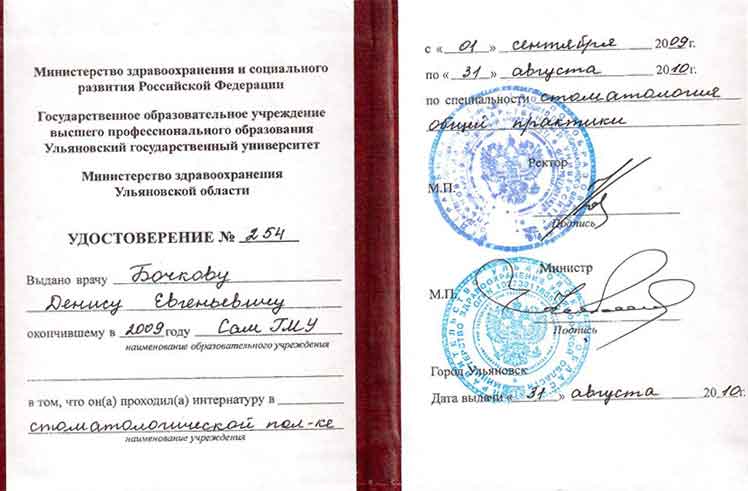 Министерство здравоохранения и социального
развития Российской Федерации
Государственное образовательное учреждение
высшего профессионального образования
Ульяновский государственный университет
Министерство здравоохранения
Ульяновской области
УДОСТОВЕРЕНИЕ № 254
Выдано врачу Бочкову
Денису Евгеньевичу
окончившему в 2009 году Сам ГМУ
наименование образовательного учреждения
в том, что он(а) проходил(а) интернатуру в
стоматологической пол-ке
наименование учреждения
с « 01 » сентября 2009г.
по « 31 » августа 2010г.
по специальности стоматология
общей практики
Ректор
М.П.
Подпись
Министр
М.П.
Подпись
Город Ульяновск
Дата выдачи « 31 » августа 2010г.